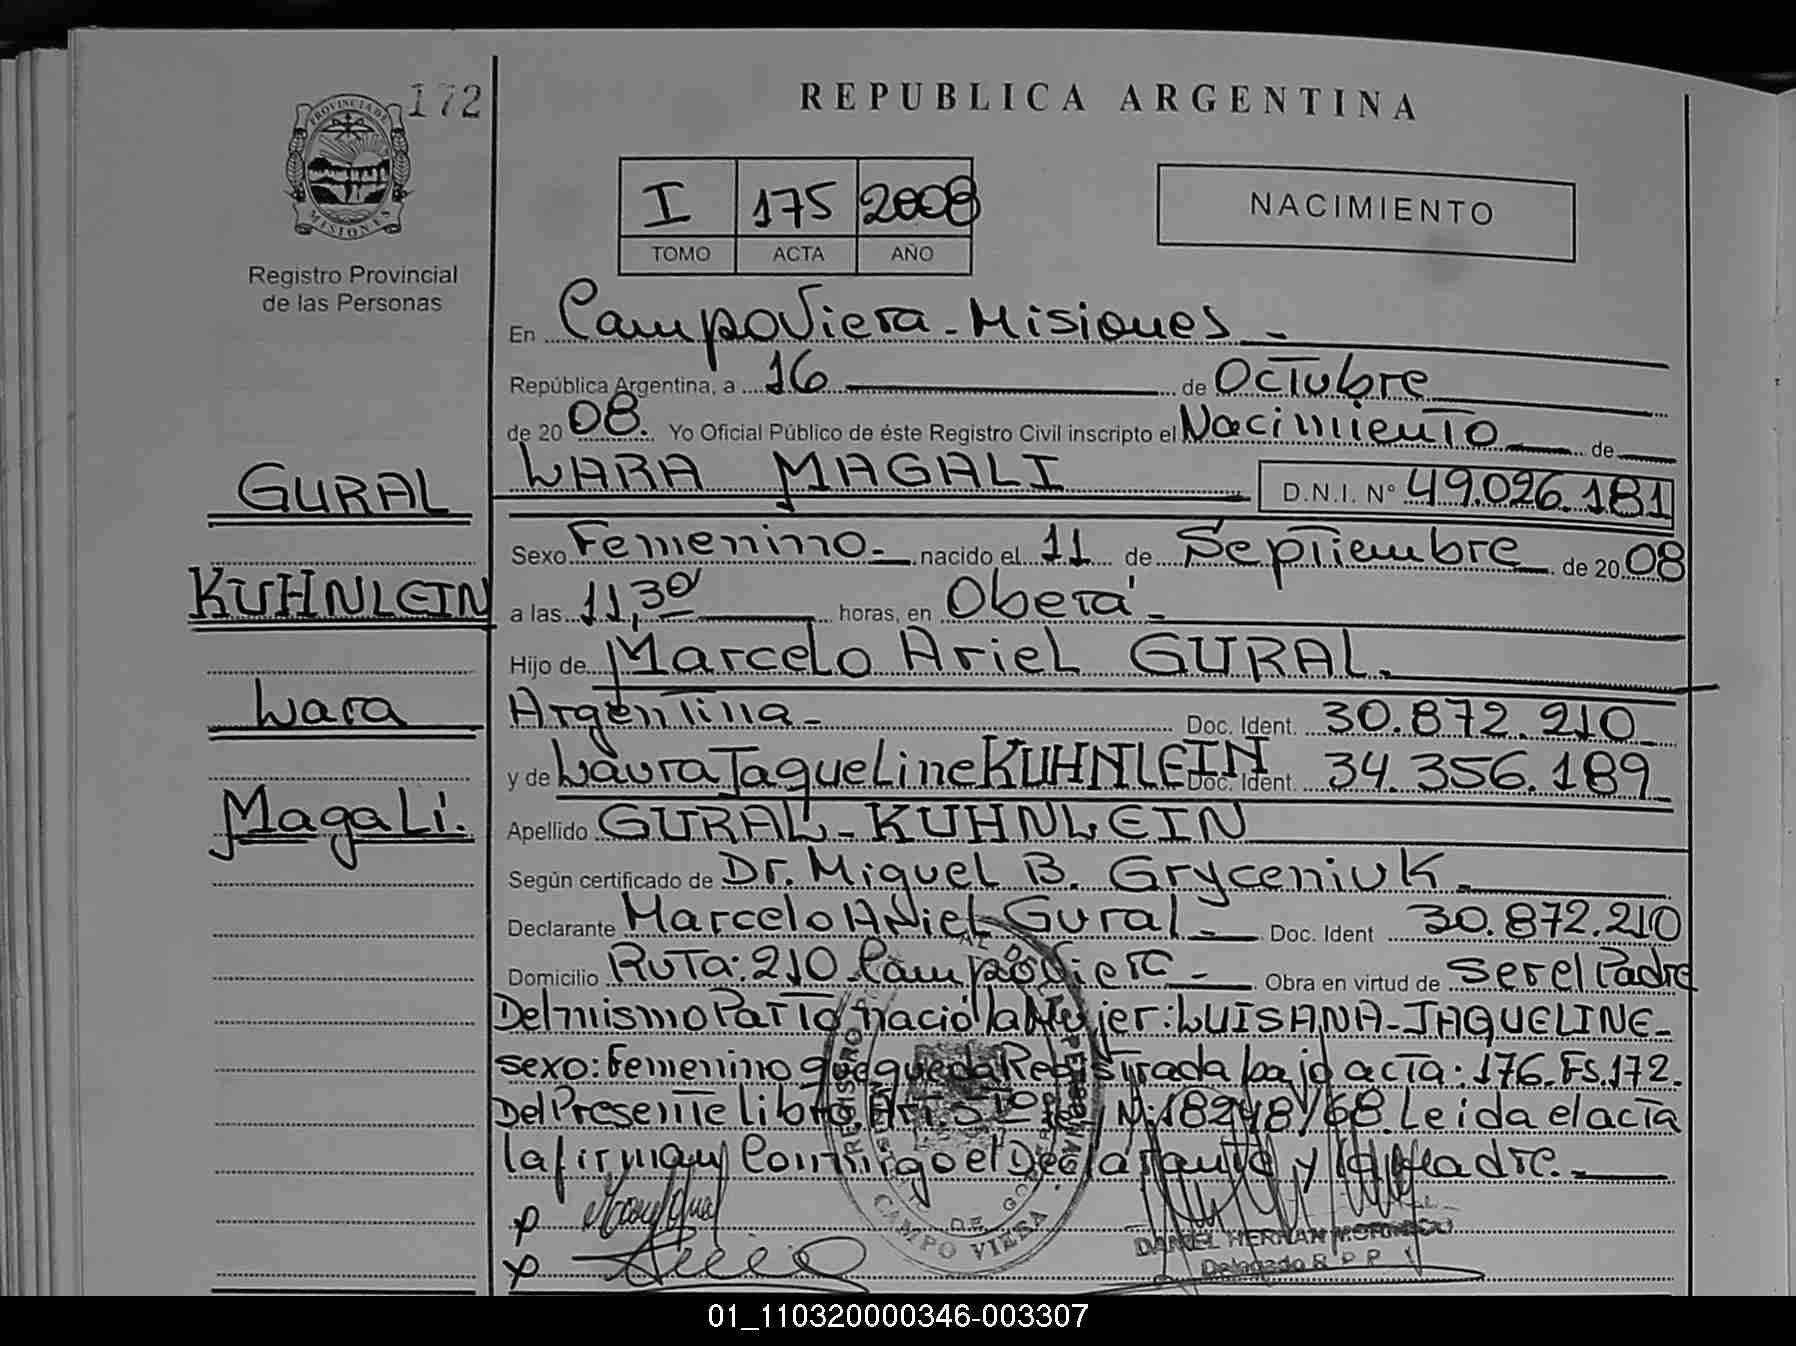 172
PROVINCIA DE
MISIONES
Registro Provincial
de las Personas
REPUBLICA ARGENTINA
I 175 2008
TOMO ACTA AÑO
NACIMIENTO
En Campo Viera - Misiones -
República Argentina, a 16 de Octubre
de 2008. Yo Oficial Público de éste Registro Civil inscripto el Nacimiento de
LARA MAGALI D.N.I. N° 49.026.181
Sexo Femenino - nacido el 11 de Septiembre de 2008
a las 11,30 horas, en Oberá -
Hijo de Marcelo Ariel GURAL.
Argentina - Doc. Ident. 30.872.210
y de Laura Jaqueline KUHNLEIN Doc. Ident. 34.356.189
Apellido GURAL - KUHNLEIN
Según certificado de Dr. Miguel B. Gryceniuk -
Declarante Marcelo Ariel Gural - Doc. Ident 30.872.210
Domicilio Ruta: 210 Campo Viera - Obra en virtud de ser el Padre
Del mismo Parto nació la Mujer: LUISANA - JAQUELINE -
sexo: Femenino que queda Registrada bajo acta: 176. Fs. 172.
Del Presente libro. Art. 5to Ley N: 18248/68. Leida el acta
la firman Conmigo el Declarante y la Madre. -
GURAL
KUHNLEIN
Lara
Magali.
CAMPO VIERA
DANIEL HERNAN
Delegado R P P
01_110320000346-003307